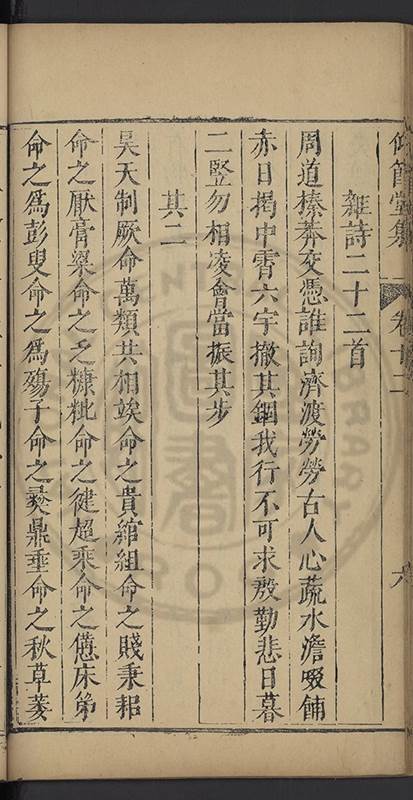 仰節堂集 卷十二 六
雜詩二十二首
周道榛莽交憑誰詢濟渡勞勞古人心蔬水澹啜餔
赤日揭中霄六宇撤其錮我行不可求殷勤悲日暮
二豎勿相凌會當振其步
其二
昊天制厥命萬類共相竢命之貴綰組命之賤秉耜
命之厭膏粱命之乏糠粃命之健超乘命之憊床笫
命之爲彭叟命之爲殤子命之彞鼎垂命之秋草萎